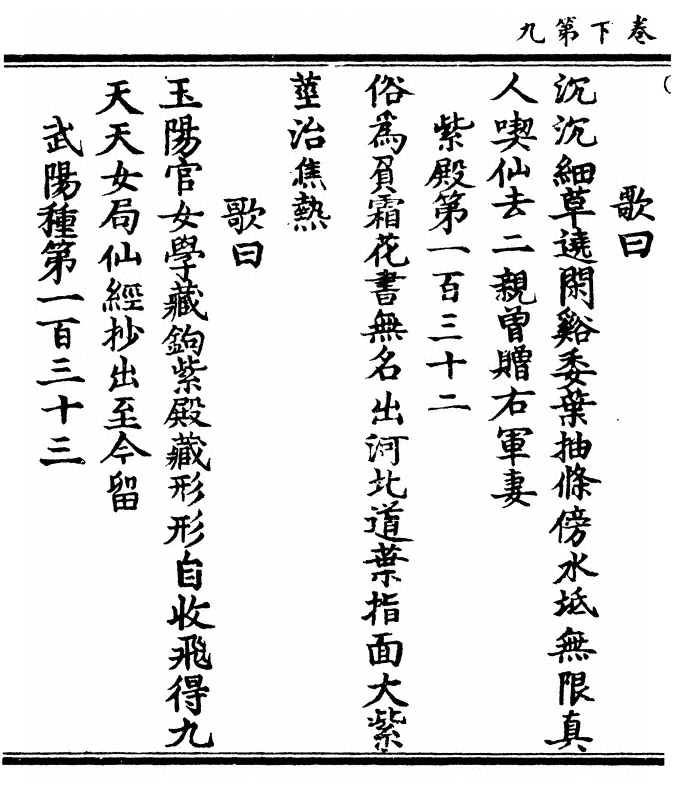 卷下第九
歌曰
沉沉細草遶閑谿委葉抽條傍水坻無限真
人喫仙去二親曾贈右軍妻
紫殿第一百三十二
俗為負霜花書無名出河北道葉指面大紫
莖治焦熱
歌曰
玉陽官女學藏鉤紫殿藏形形自收飛得九
天天女局仙經抄出至今留
武陽種第一百三十三